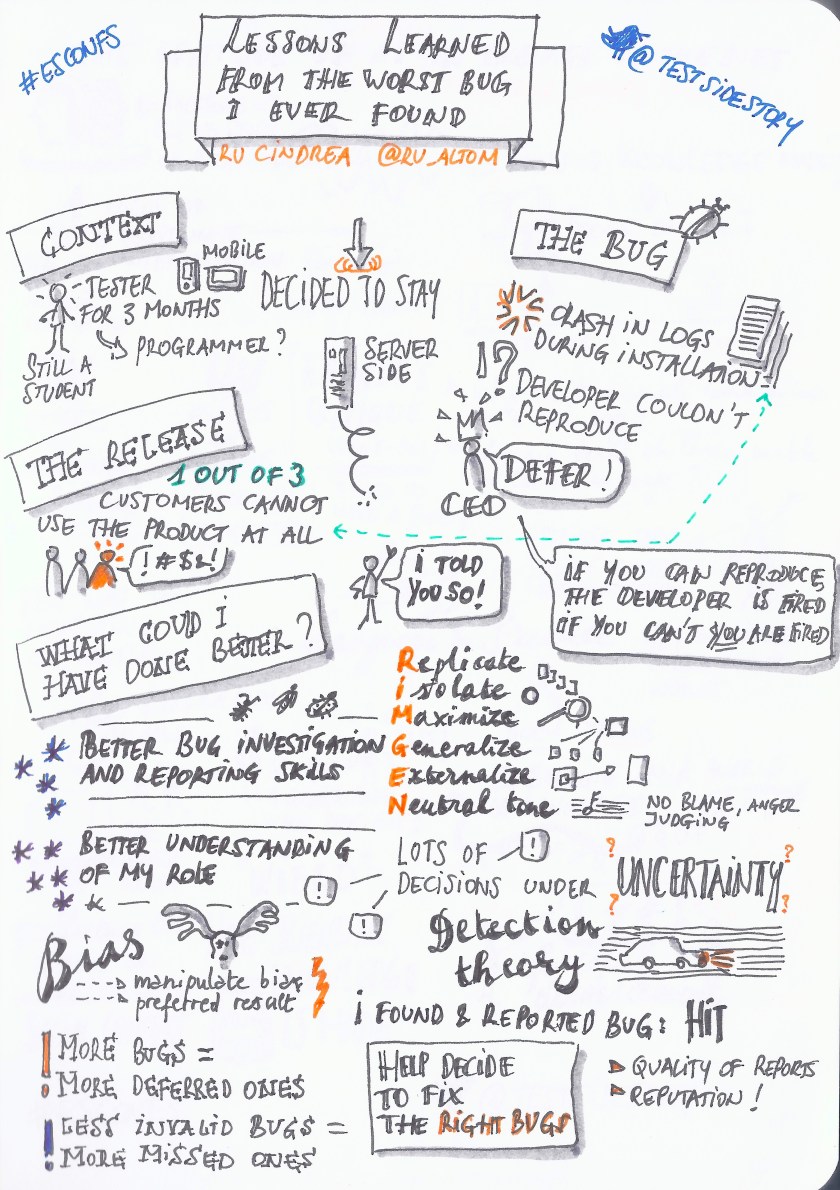 #ESCONFS
LESSONS LEARNED
FROM THE WORST BUG
I EVER FOUND
RU CINDREA @RU_ALTOM
@TESTSIDESTORY
CONTEXT
TESTER
FOR 3 MONTHS
MOBILE
PROGRAMMER?
STILL A
STUDENT
DECIDED TO STAY
SERVER
SIDE
THE BUG
CRASH IN LOGS
DURING INSTALLATION
!?
DEVELOPER COULDN'T
REPRODUCE
DEFER!
CEO
IF YOU CAN REPRODUCE,
THE DEVELOPER IS FIRED
IF YOU CAN'T YOU ARE FIRED
THE RELEASE
1 OUT OF 3
CUSTOMERS CANNOT
USE THE PRODUCT AT ALL
!#$&!
I TOLD
YOU SO!
WHAT COUD I
HAVE DONE BETTER?
BETTER BUG INVESTIGATION
AND REPORTING SKILLS
Replicate
isolate
Maximize
Generalize
Externalize
Neutral tone
NO BLAME, ANGER
JUDGING
BETTER UNDERSTANDING
OF MY ROLE
LOTS OF
DECISIONS UNDER
!
!
!
? ?
UNCERTAINTY
? ?
Bias
manipulate bias
preferred result
Detection
theory
I FOUND & REPORTED BUG: HIT
QUALITY OF REPORTS
REPUTATION!
! MORE BUGS =
MORE DEFERRED ONES
! LESS INVALID BUGS =
MORE MISSED ONES
HELP DECIDE
TO FIX
THE RIGHT BUGS